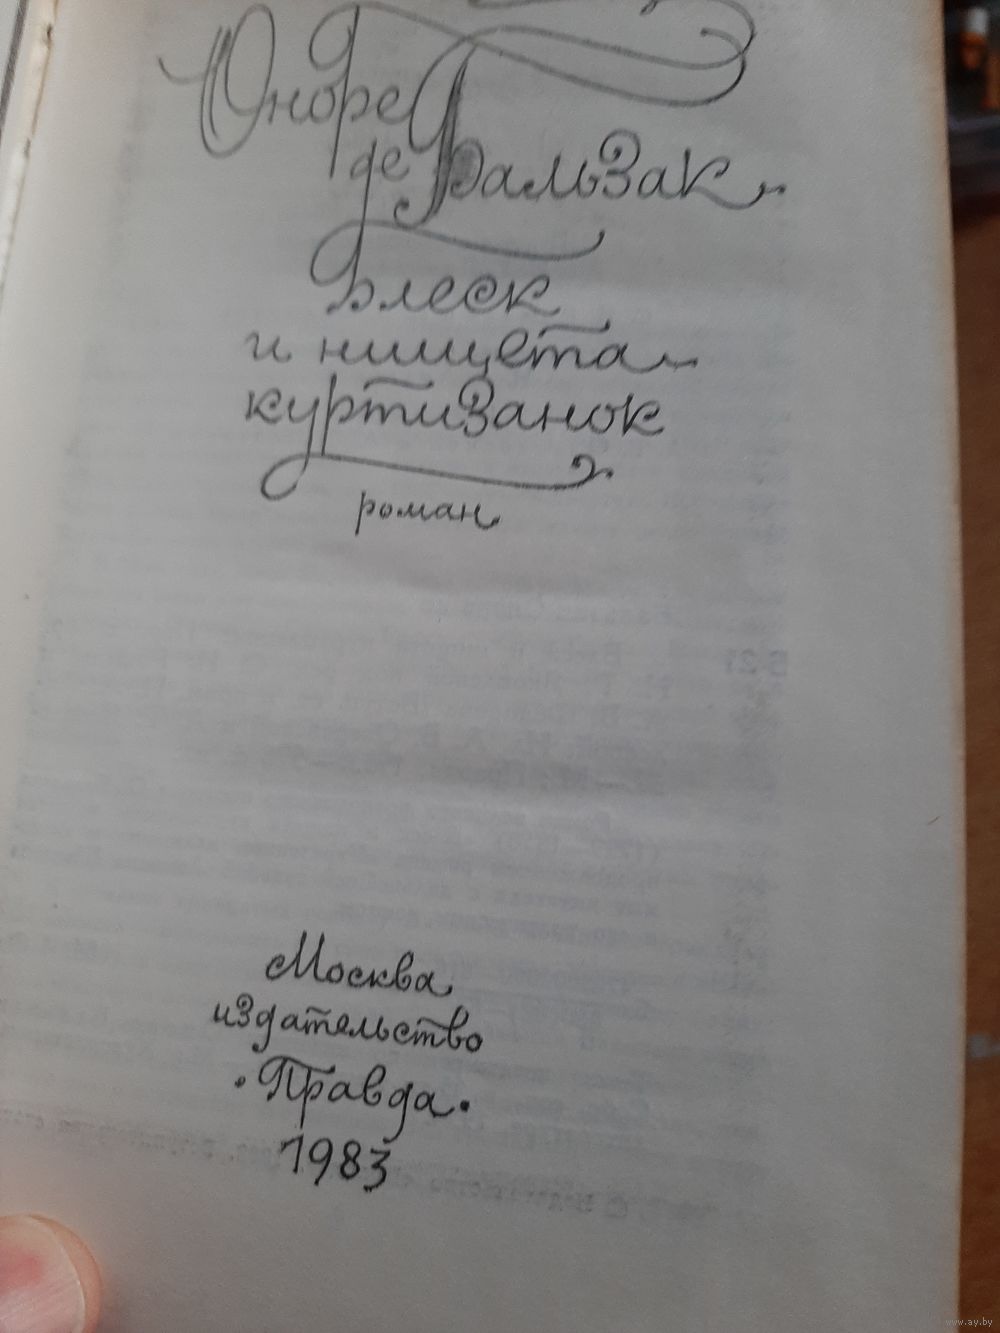 Оноре
де Бальзак
Блеск
и нищета
куртизанок
роман
Б 21
Москва
издательство
·Правда·
1983
www.ay.by